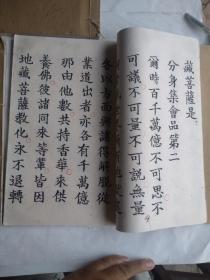 藏菩薩是
分身集會品第二
爾時百千萬億不可思不
可議不可量不可說無量
業道出者亦各有千萬億
那由他數共持香華來供
養佛彼諸同來等輩皆因
地藏菩薩教化永不退轉